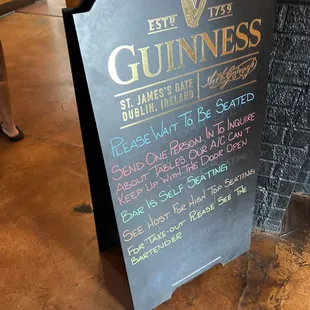 ESTD 1759
GUINNESS
ST. JAMES'S GATE
DUBLIN, IRELAND
PLEASE WAIT TO BE SEATED
SEND ONE PERSON IN TO INQUIRE
ABOUT TABLES OUR A/C CAN'T
KEEP UP WITH THE DOOR OPEN
BAR IS SELF SEATING
SEE HOST FOR HIGH TOP SEATING
FOR TAKE-OUT PLEASE SEE THE
BARTENDER